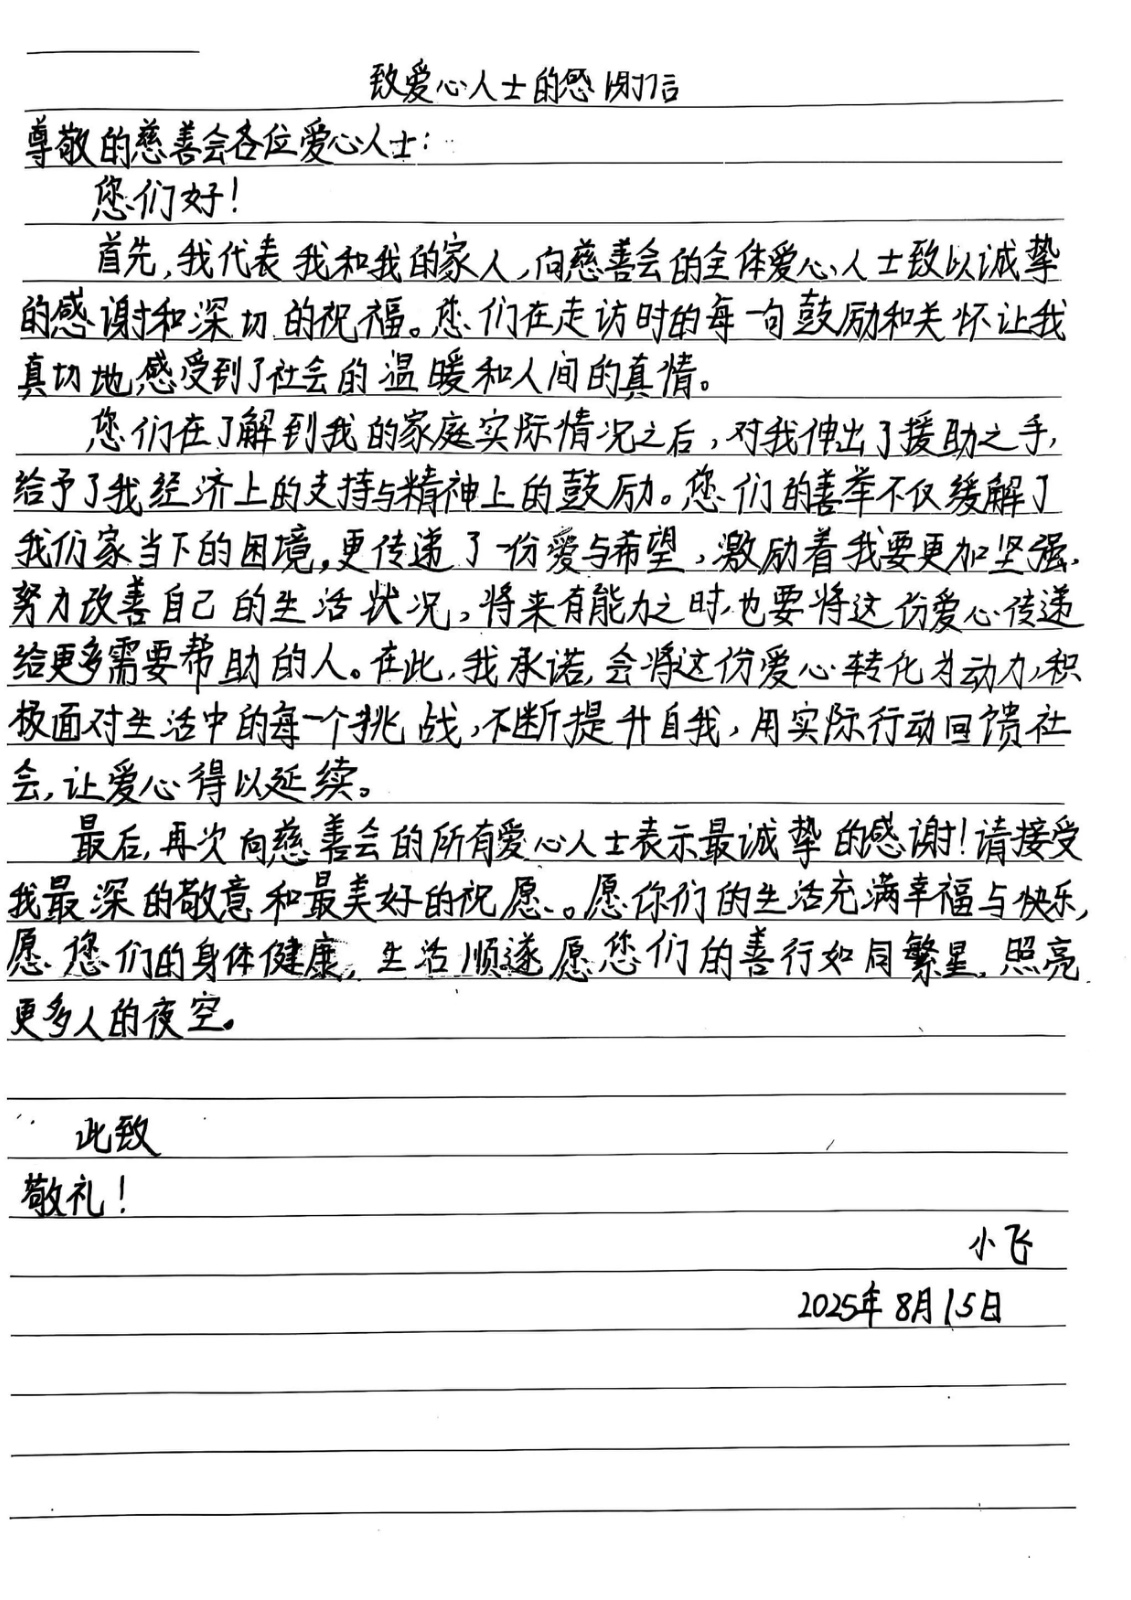 致爱心人士的感谢信
尊敬的慈善会各位爱心人士：
您们好！
首先，我代表我和我的家人，向慈善会的全体爱心人士致以诚挚
的感谢和深切的祝福。您们在走访时的每一句鼓励和关怀让我
真切地感受到了社会的温暖和人间的真情。
您们在了解到我的家庭实际情况之后，对我伸出了援助之手，
给予了我经济上的支持与精神上的鼓励。您们的善举不仅缓解了
我们家当下的困境，更传递了一份爱与希望，激励着我要更加坚强，
努力改善自己的生活状况，将来有能力之时，也要将这份爱心传递
给更多需要帮助的人。在此，我承诺，会将这份爱心转化为动力，积
极面对生活中的每一个挑战，不断提升自我，用实际行动回馈社
会，让爱心得以延续。
最后，再次向慈善会的所有爱心人士表示最诚挚的感谢！请接受
我最深的敬意和最美好的祝愿。愿你们的生活充满幸福与快乐，
愿您们的身体健康，生活顺遂愿您们的善行如同繁星，照亮
更多人的夜空。
此致
敬礼！
小飞
2025年8月15日